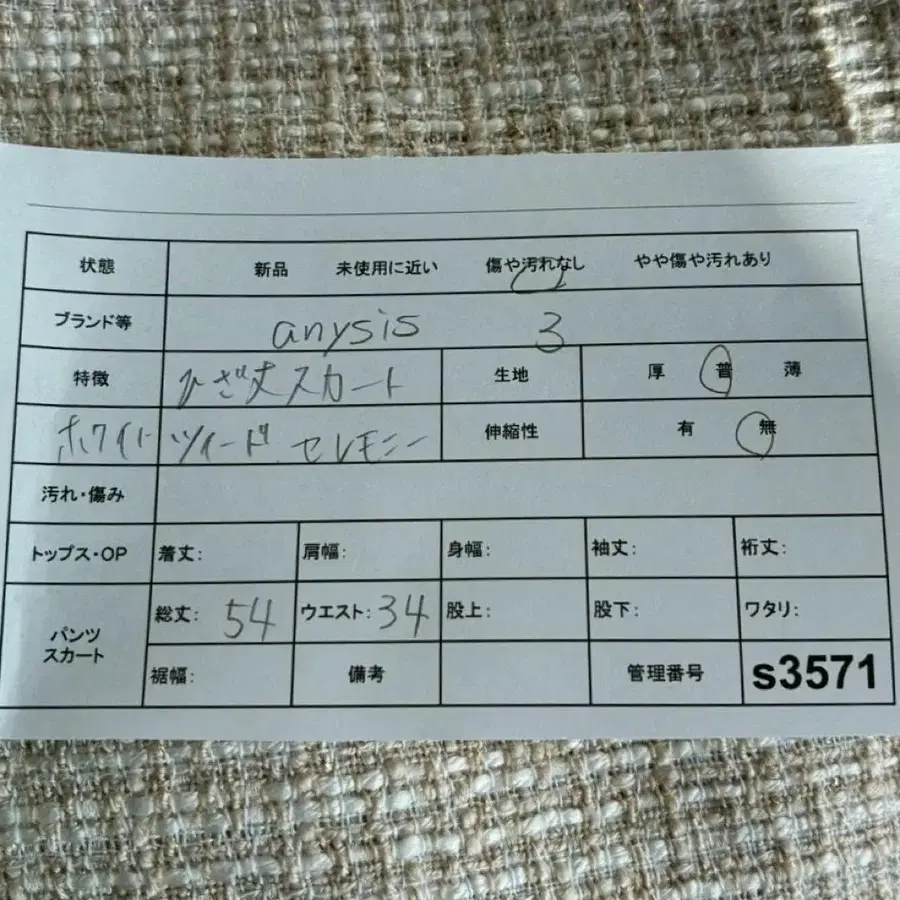 状態 新品 未使用に近い 傷や汚れなし やや傷や汚れあり
ブランド等 anysis 3
特徴 ひざ丈スカート 生地 厚 普 薄
ホワイト ツイード セレモニー 伸縮性 有 無
汚れ・傷み
トップス・OP 着丈: 肩幅: 身幅: 袖丈: 裄丈:
パンツ スカート 総丈: 54 ウエスト: 34 股上: 股下: ワタリ:
裾幅: 備考 管理番号 s3571